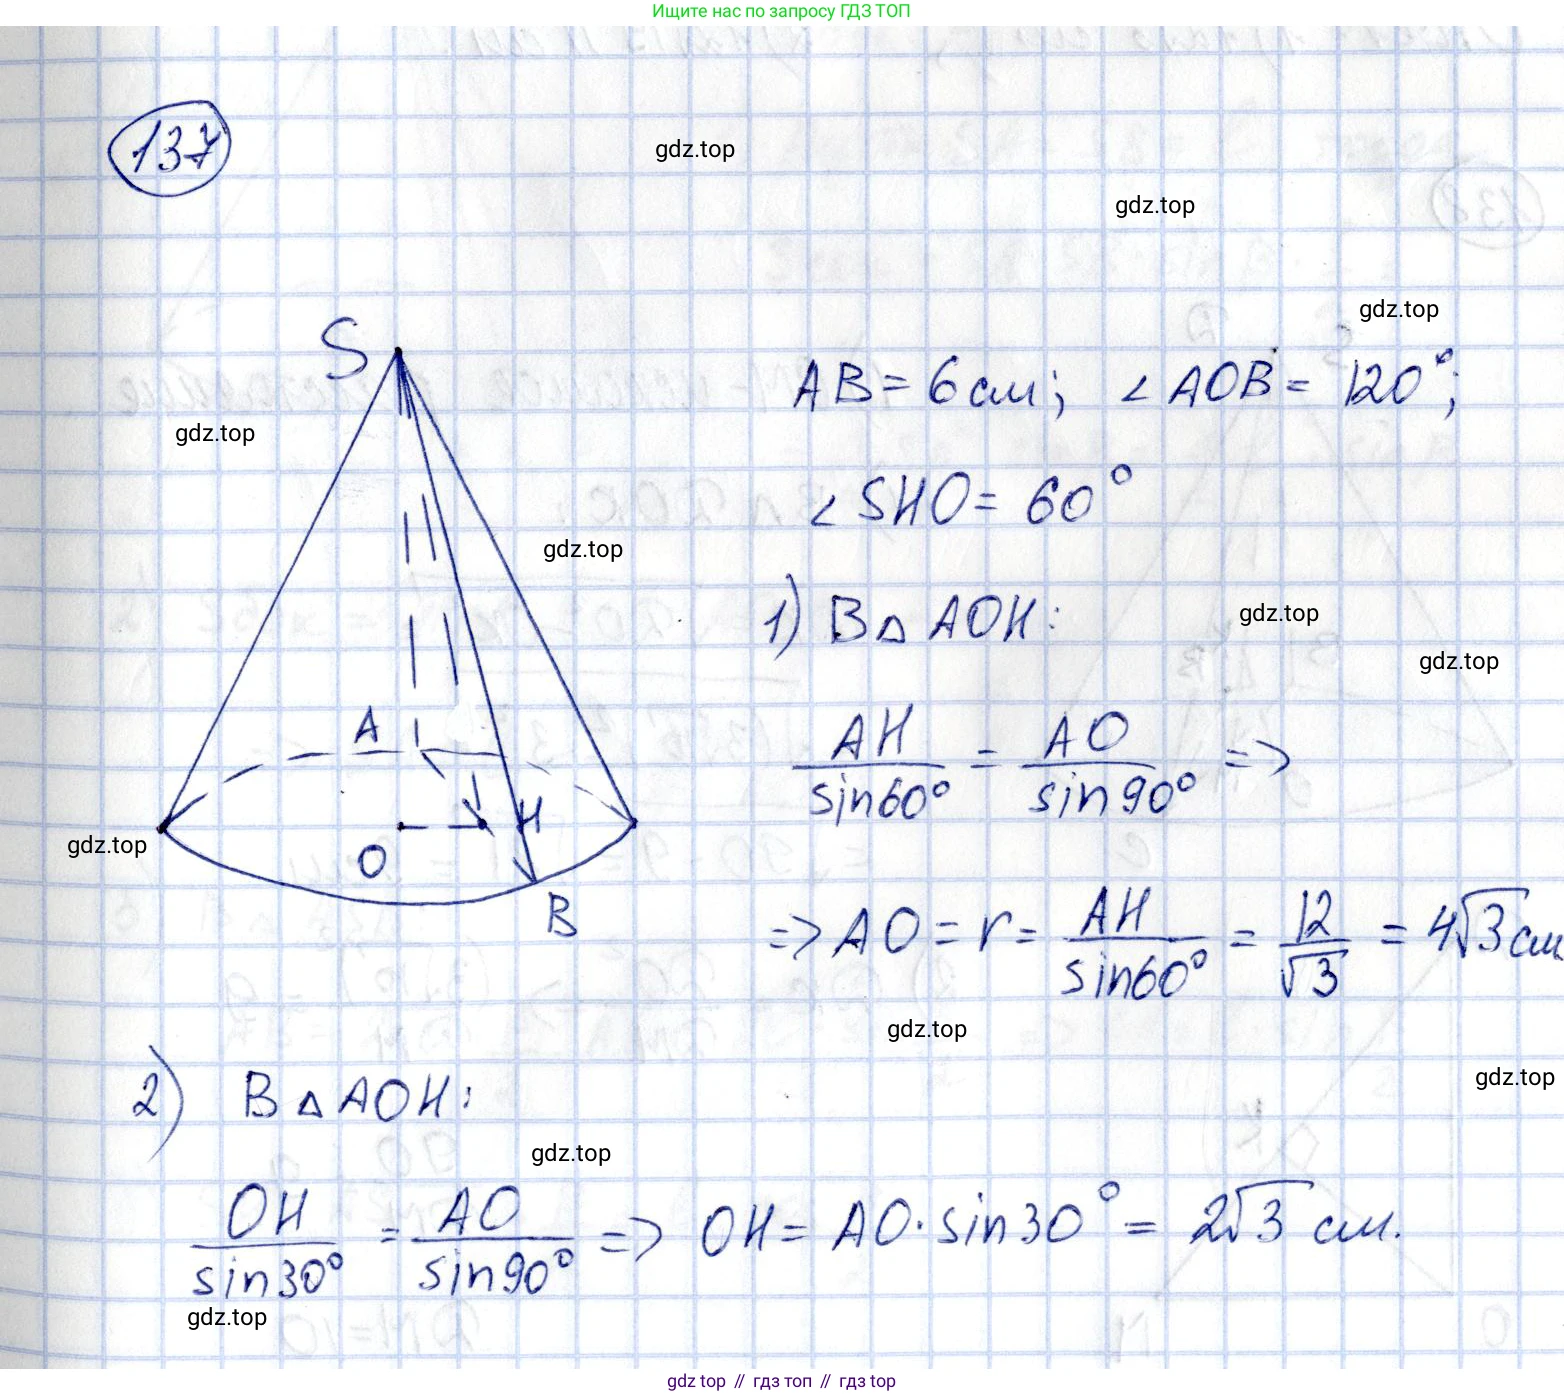 Ищите нас по запросу ГДЗ ТОП
137
gdz.top
gdz.top
gdz.top
S
AB = 6 см; ∠AOB = 120°;
gdz.top
∠SHO = 60°
gdz.top
1) В △ AOH:
gdz.top
gdz.top
A
AH/sin60° = AO/sin90° =>
H
gdz.top
O
B
=> AO = r = AH/sin60° = 12/√3 = 4√3 см
gdz.top
gdz.top
2) В △ AOH:
gdz.top
OH/sin30° = AO/sin90° => OH = AO · sin30° = 2√3 см.
gdz.top
gdz top // гдз топ // гдз top